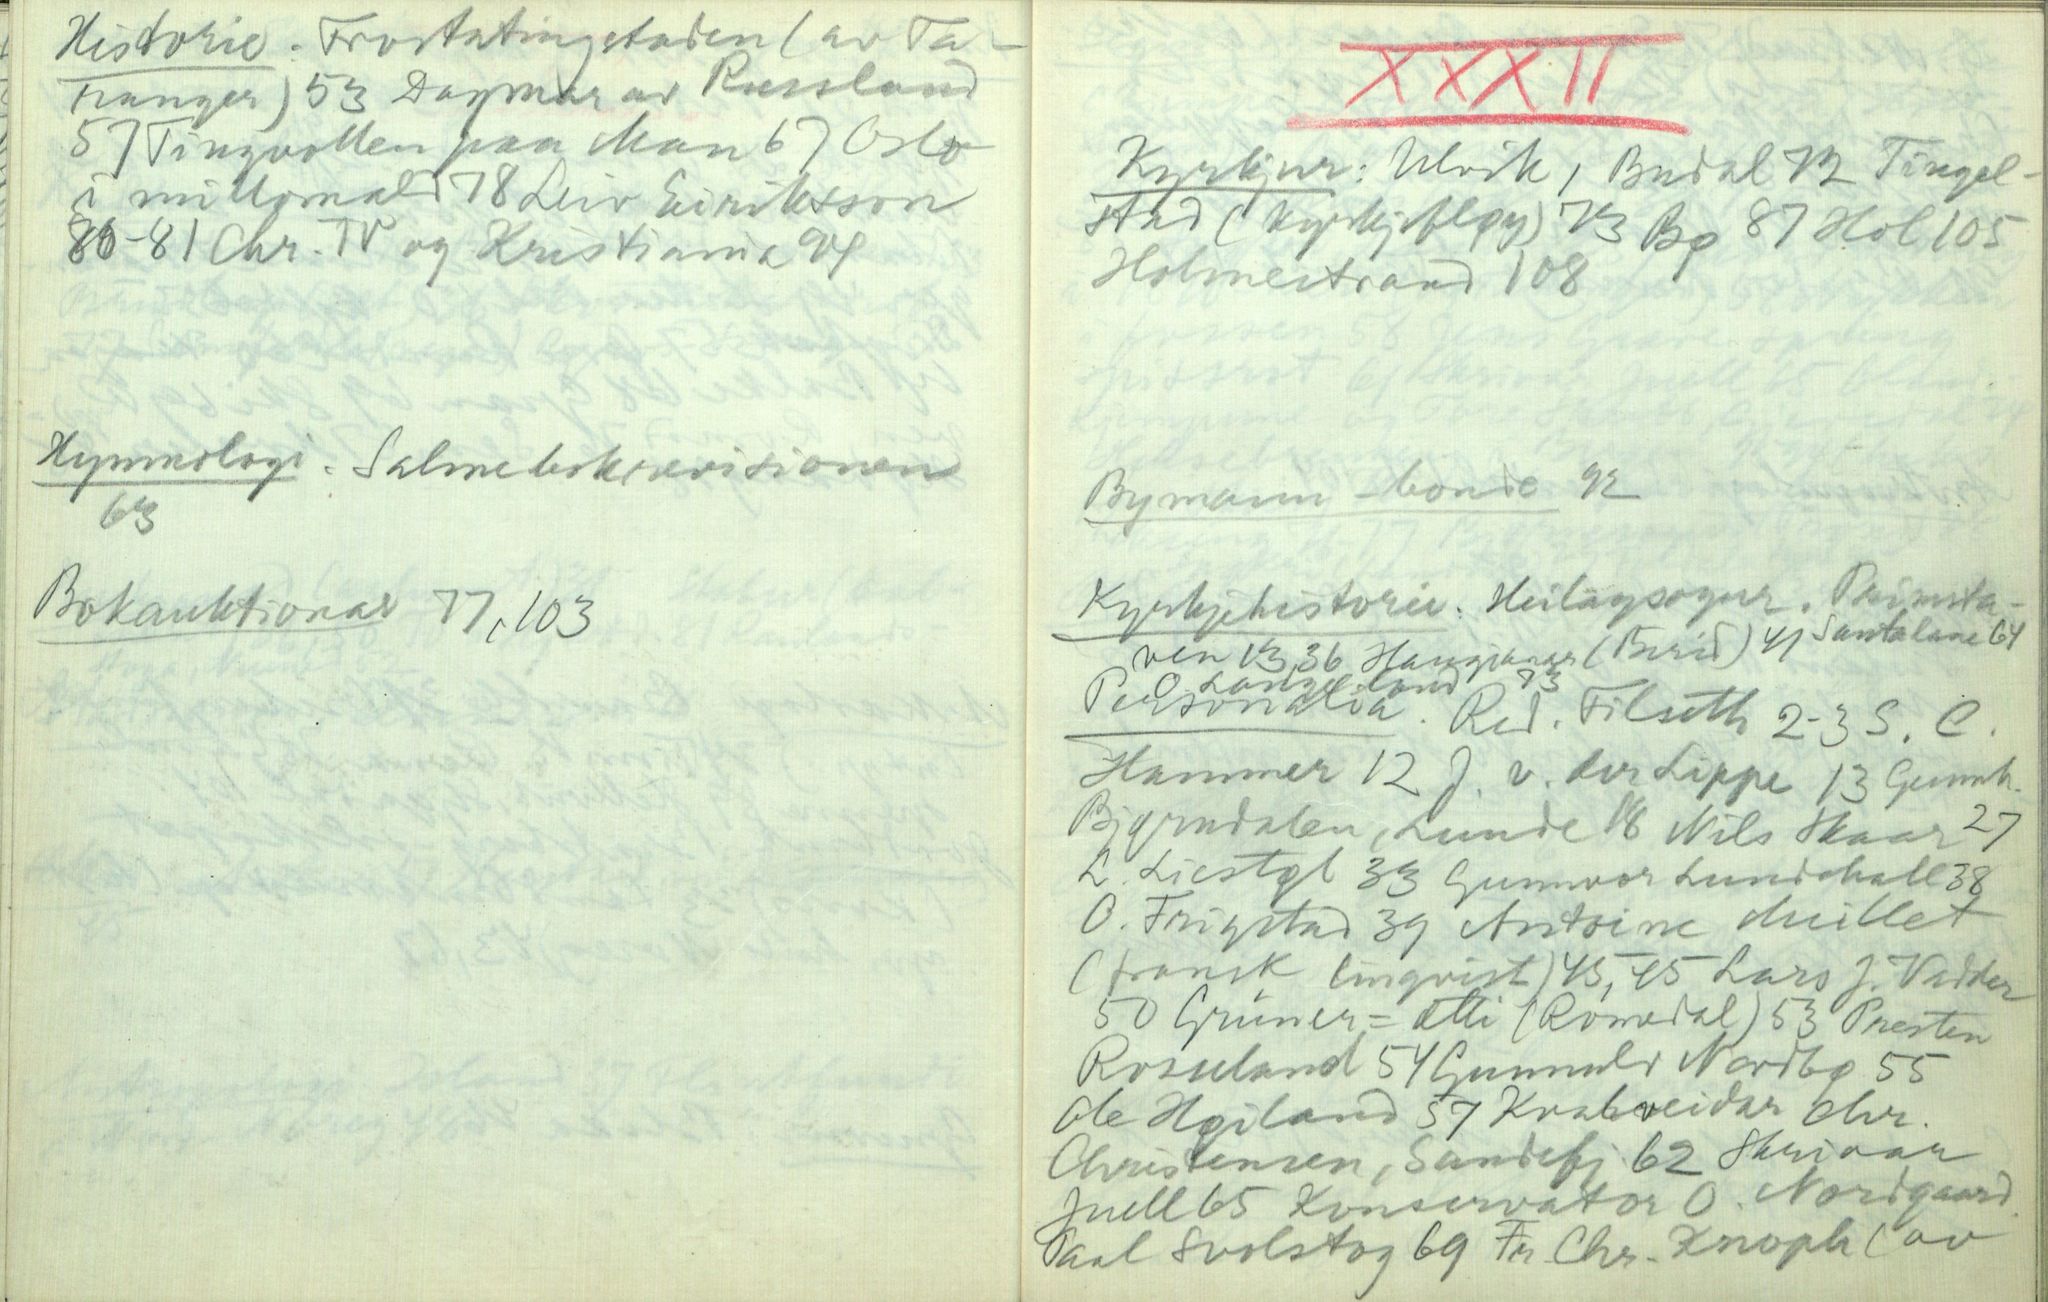 Historie. Frostatingstaden (av Ta-
ranger) 53 Dagmar av Russland
57 Tingvollen paa Man 67 Oslo
i millomald 78 Leiv Eiriksson
80-81 Chr. IV og Kristiania 94
Hymnologi. Salmebokrevisionen
63
Bokauktionar 77, 103
XXXII
Kyrkjur: Ulvik, Budal 72 Tingel-
stad (kyrkjefløy) 73 Bø 87 Hol 105
Holmestrand 108
Bymann - bonde 92
Kyrkjehistorie. Heilagsogur. Primsta-
ven 13, 36 Haugianar (Brid) 41 Santalane 64
O. Landeland 73
Personalia. Red. Filseth 2-3 S. C.
Hammer 12 J. v. der Lippe 13 Gunnh.
Bjørndalen, Lunde 16 Nils Skaar 27
L. Liestøl 33 Gunnvor Lundshall 38
O. Frigstad 39 Antoine Meillet
(fransk lingvist) 45, 75 Lars J. Vadder
50 Grüner = Atti (Romsdal) 53 Presten
Rosseland 54 Gunnulv Nordbø 55
Ole Høiland 57 Kvalveidar Chr.
Christensen, Sandefj 62 Skrivar
Juell 65 Konservator O. Nordgaard
Paal Svolstog 69 Fr. Chr. Knoph (av